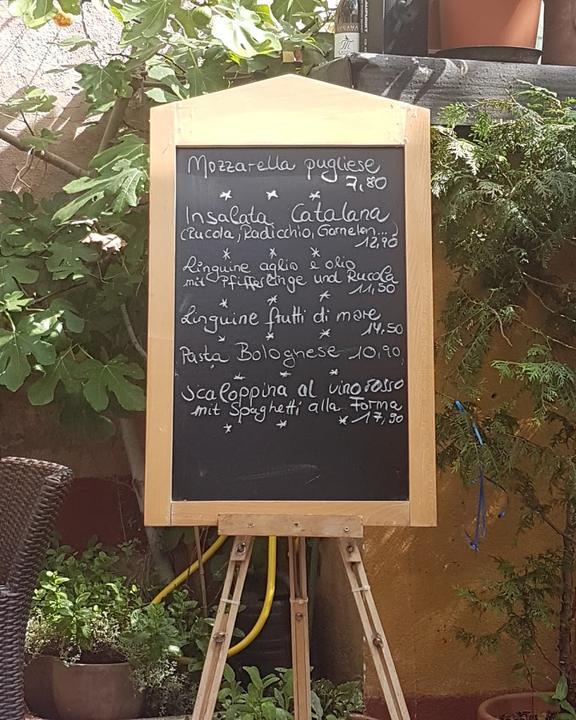 Mozzarella pugliese
7,80
Insalata Catalana
(Rucola, Radicchio, Garnelen...)
12,90
Linguine aglio e olio
mit Pfifferlinge und Rucola
11,50
Linguine frutti di mare
14,50
Pasta Bolognese 10,90
Scaloppina al vino rosso
mit Spaghetti alla Forma
17,90